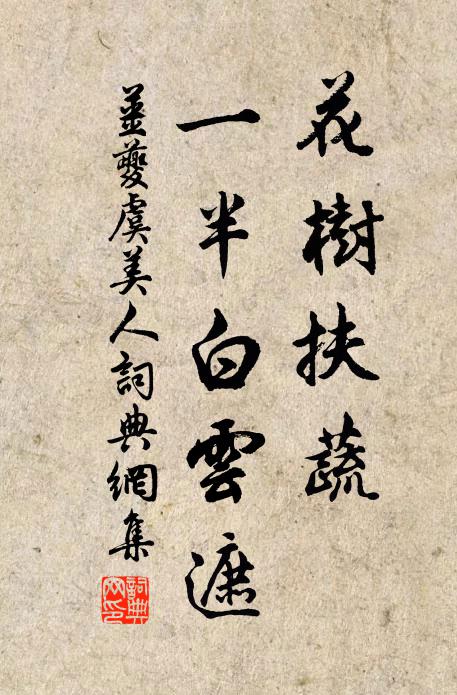 花樹扶蔬
一半白雲遮
姜夔虞美人詞典網集
詞典
網印